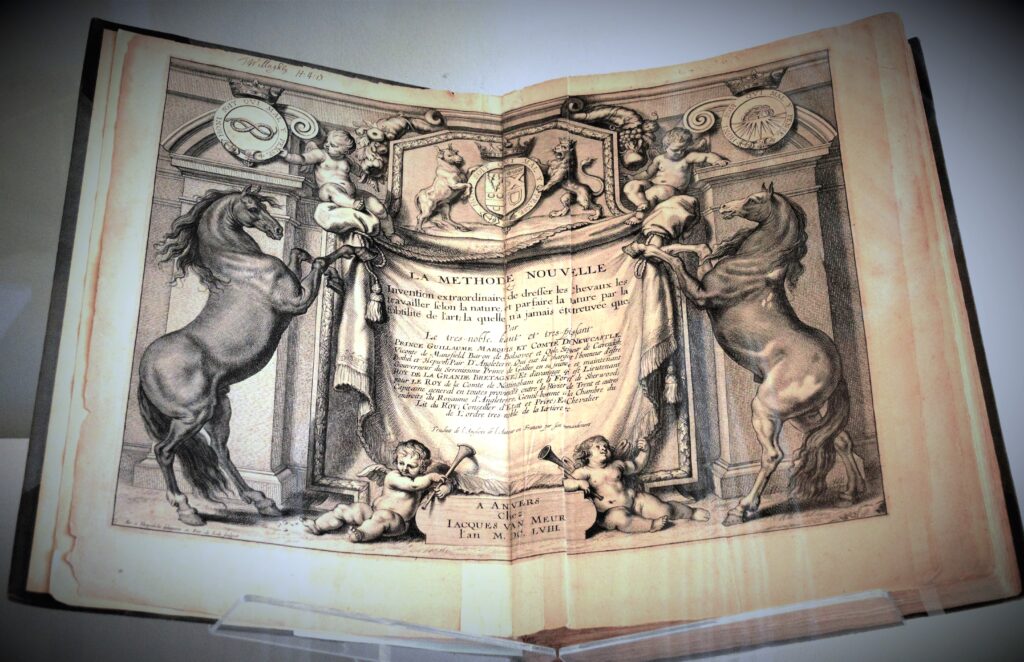 LA METHODE NOUVELLE
&
Invention extraordinaire de dresser les chevaux les
travailler selon la nature, et parfaire la nature par la
subtilité de l'art; la quelle n'a jamais été treuvée que
Par
Le tres-noble, haut et tres-puissant
PRINCE GUILLAUME MARQUIS ET COMTE DE NEWCASTLE
Vicomte de Mansfield, Baron de Balsover et Ogle, Seigneur de Cavendish
Bothel et Hepwel: Pair D'Angleterre, Qui eut la charge et l'honneur d'estre
Gouverneur du Serenissime Prince de Galles en sa jeunesse et maintenant
ROY DE LA GRANDE BRETAGNE; Et d'avantage est Lieutenant
pour LE ROY de la Comté de Nottingham et la Forest de Sherwood
Capitaine general en toutes provinces outre la Riviere de Trent et autres
endroits du Royaume d'Angleterre, Gentil-homme de la Chambre du
Lit du ROY, Conseiller d'Etat et Privé; Et Chevalier
de L'ordre tres noble de la Iartiere &c
A ANVERS
Chez
IACQUES VAN MEUR
l'an M. DC. LVIII.